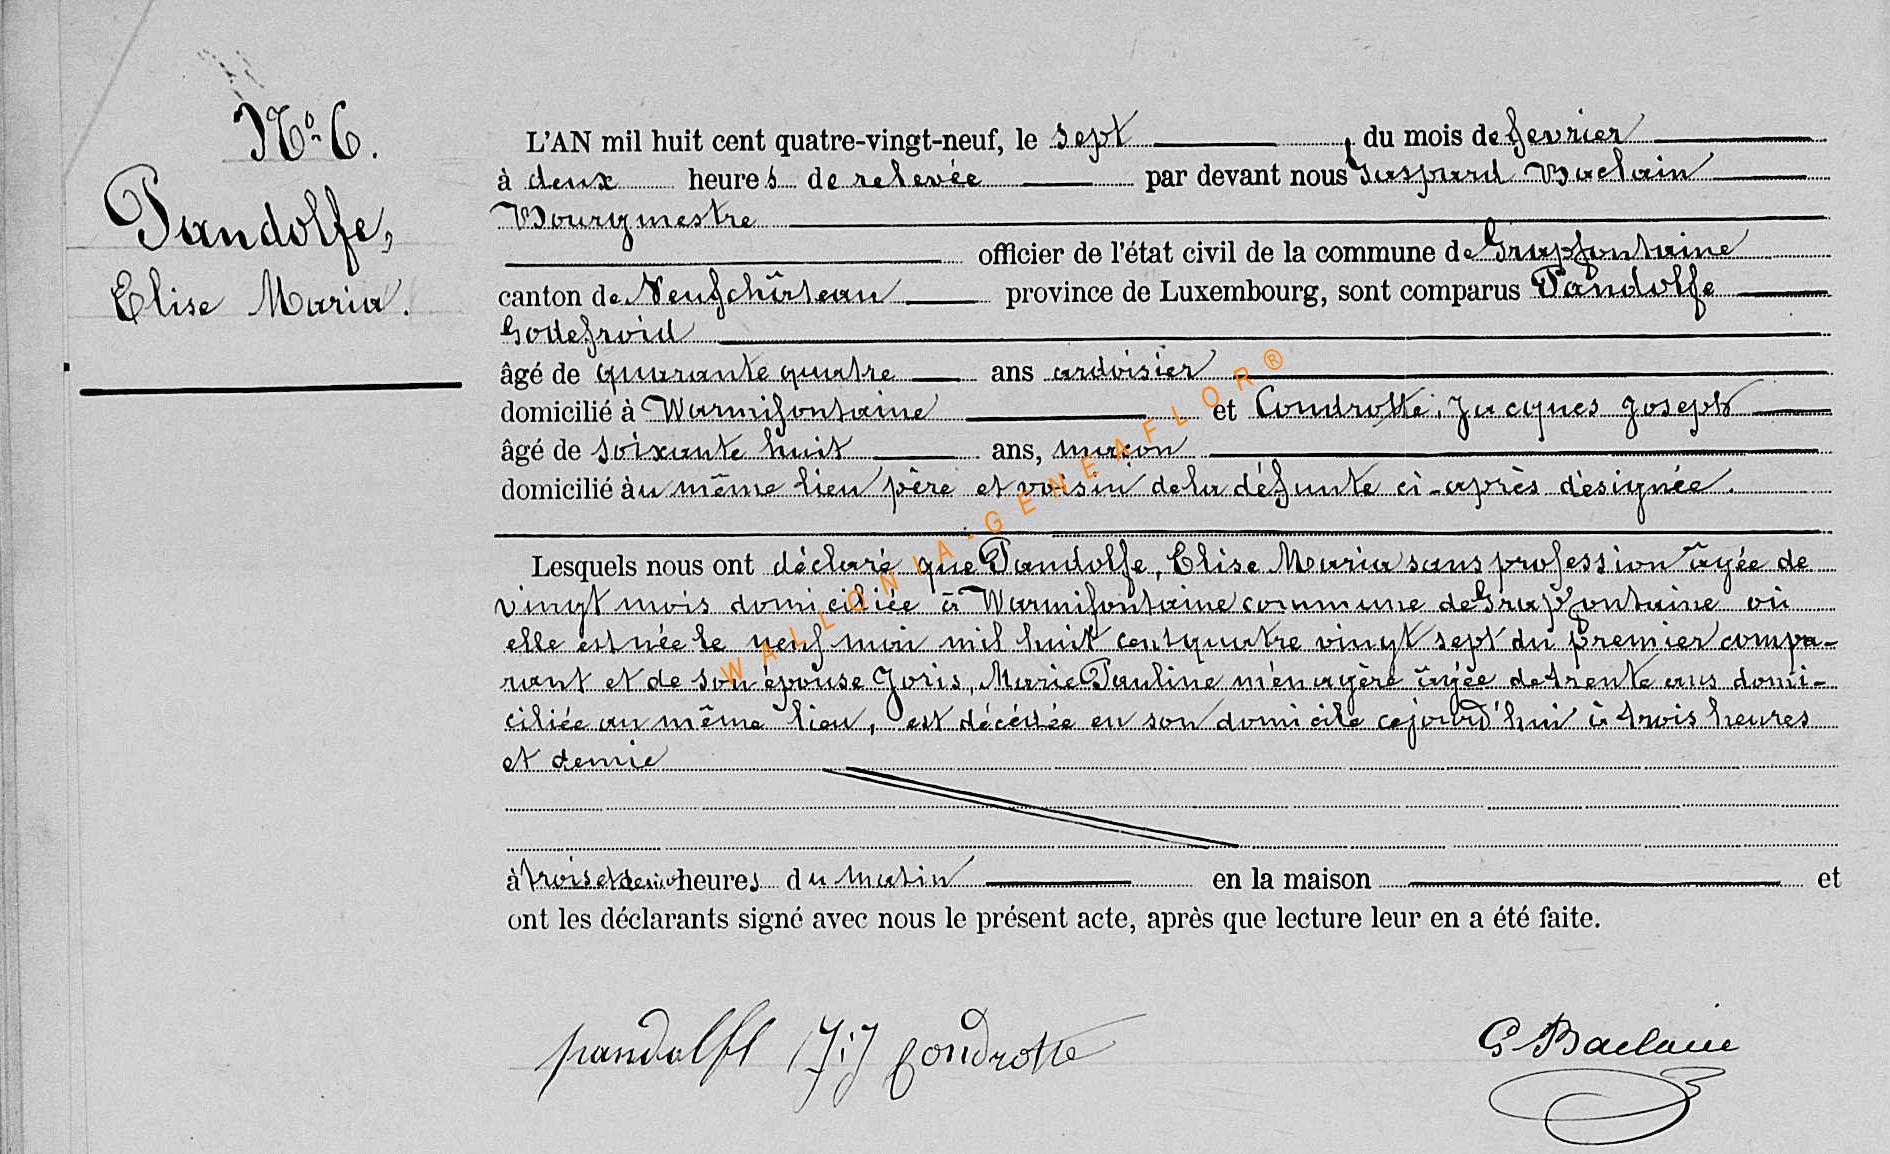 No. 6.
Pandolfe,
Elise Maria.
L'AN mil huit cent quatre-vingt-neuf, le sept, du mois de fevrier
à deux heures de relevée par devant nous Gaspard Baclain
Bourgmestre
officier de l'état civil de la commune de Grapfontaine
canton de Neufchâteau province de Luxembourg, sont comparus Pandolfe
Godefroid
âgé de quarante quatre ans ardoisier
domicilié à Warmifontaine et Condrotte, Jacques Joseph
âgé de soixante huit ans, maçon
domicilié àu même lieu père et voisin de la défunte ci-après désignée.
Lesquels nous ont déclaré que Pandolfe, Elise Maria sans profession âgée de
vingt mois domiciliée à Warmifontaine commune de Grapfontaine où
elle est née le neuf mai mil huit cent quatre vingt sept du premier compa-
rant et de son épouse Joris, Marie Pauline ménagère âgée de trente ans domi-
ciliée au même lieu, est décédée en son domicile cejourd'hui à trois heures
et demie
à trois et demie heures du matin en la maison et
ont les déclarants signé avec nous le présent acte, après que lecture leur en a été faite.
pandolfe J.J Condrotte G Baclain
WALLONIA-GENEAFLOR®